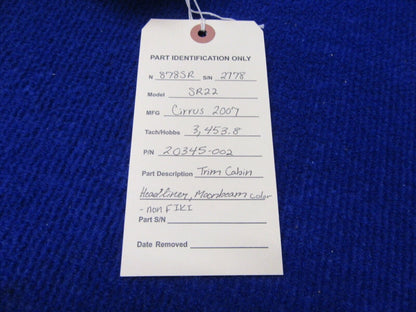 PART IDENTIFICATION ONLY
N 878SR S/N 2778
Model SR22
MFG Cirrus 2007
Tach/Hobbs 3,453.8
P/N 20345-002
Part Description Trim Cabin
Headliner, Moonbeam color
- non FIKI
Part S/N
Date Removed